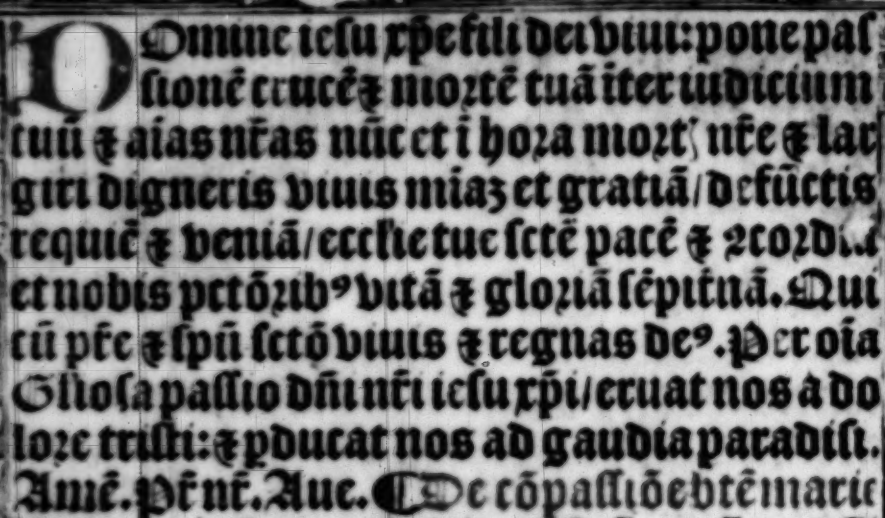 DOmine iesu xp̄e fili dei viui: pone pas
sionē crucē ⁊ mortē tuā īter iudicium
tuū ⁊ aīas nr̄as nūc et ī hora mortꝭ nr̄e ⁊ lar
giri digneris viuis mīaꝫ et gratiā / defūctis
requiē ⁊ veniā / eccl̄ie tue sctē pacē ⁊ ꝯcordia
et nobis pctōribꝰ vitā ⁊ gloriā sēpit̄nā. Qui
cū pr̄e ⁊ spū sctō viuis ⁊ regnas deꝰ. Per oīa
Gl̄iosa passio dn̄i nr̄i iesu xp̄i / eruat nos a do
lore tristi: ⁊ ꝑducat nos ad gaudia paradisi.
Amē. Pr̄ nr̄. Aue. ¶ De cōpassiōe btē marie